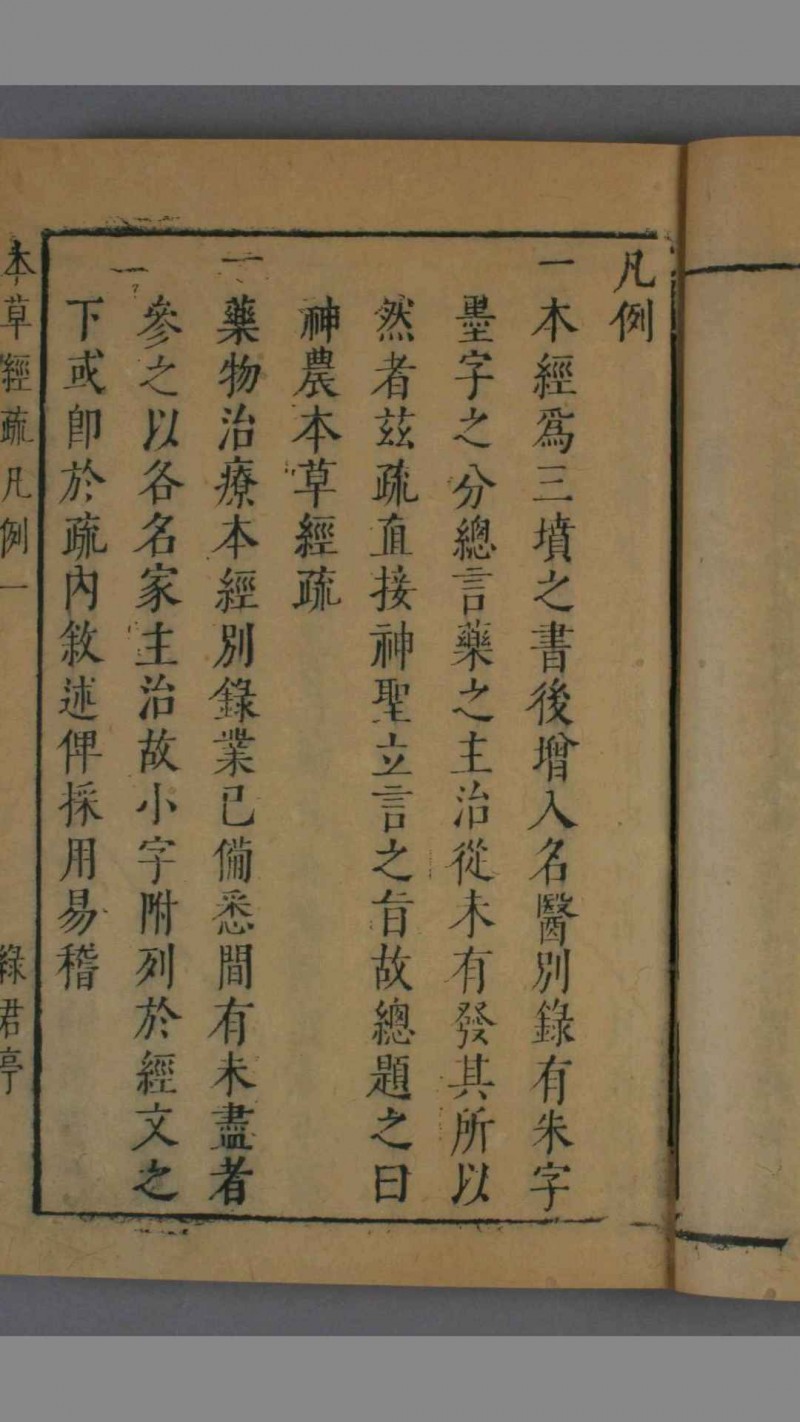 凡例
一本經爲三墳之書後增入名醫別錄有朱字
墨字之分總言藥之主治從未有發其所以
然者兹疏直接神聖立言之旨故總題之曰
神農本草經疏
一藥物治療本經別錄業已備悉間有未盡者
參之以各名家主治故小字附列於經文之
下或卽於疏内敘述俾採用易稽
本草經疏凡例一 綠君亭